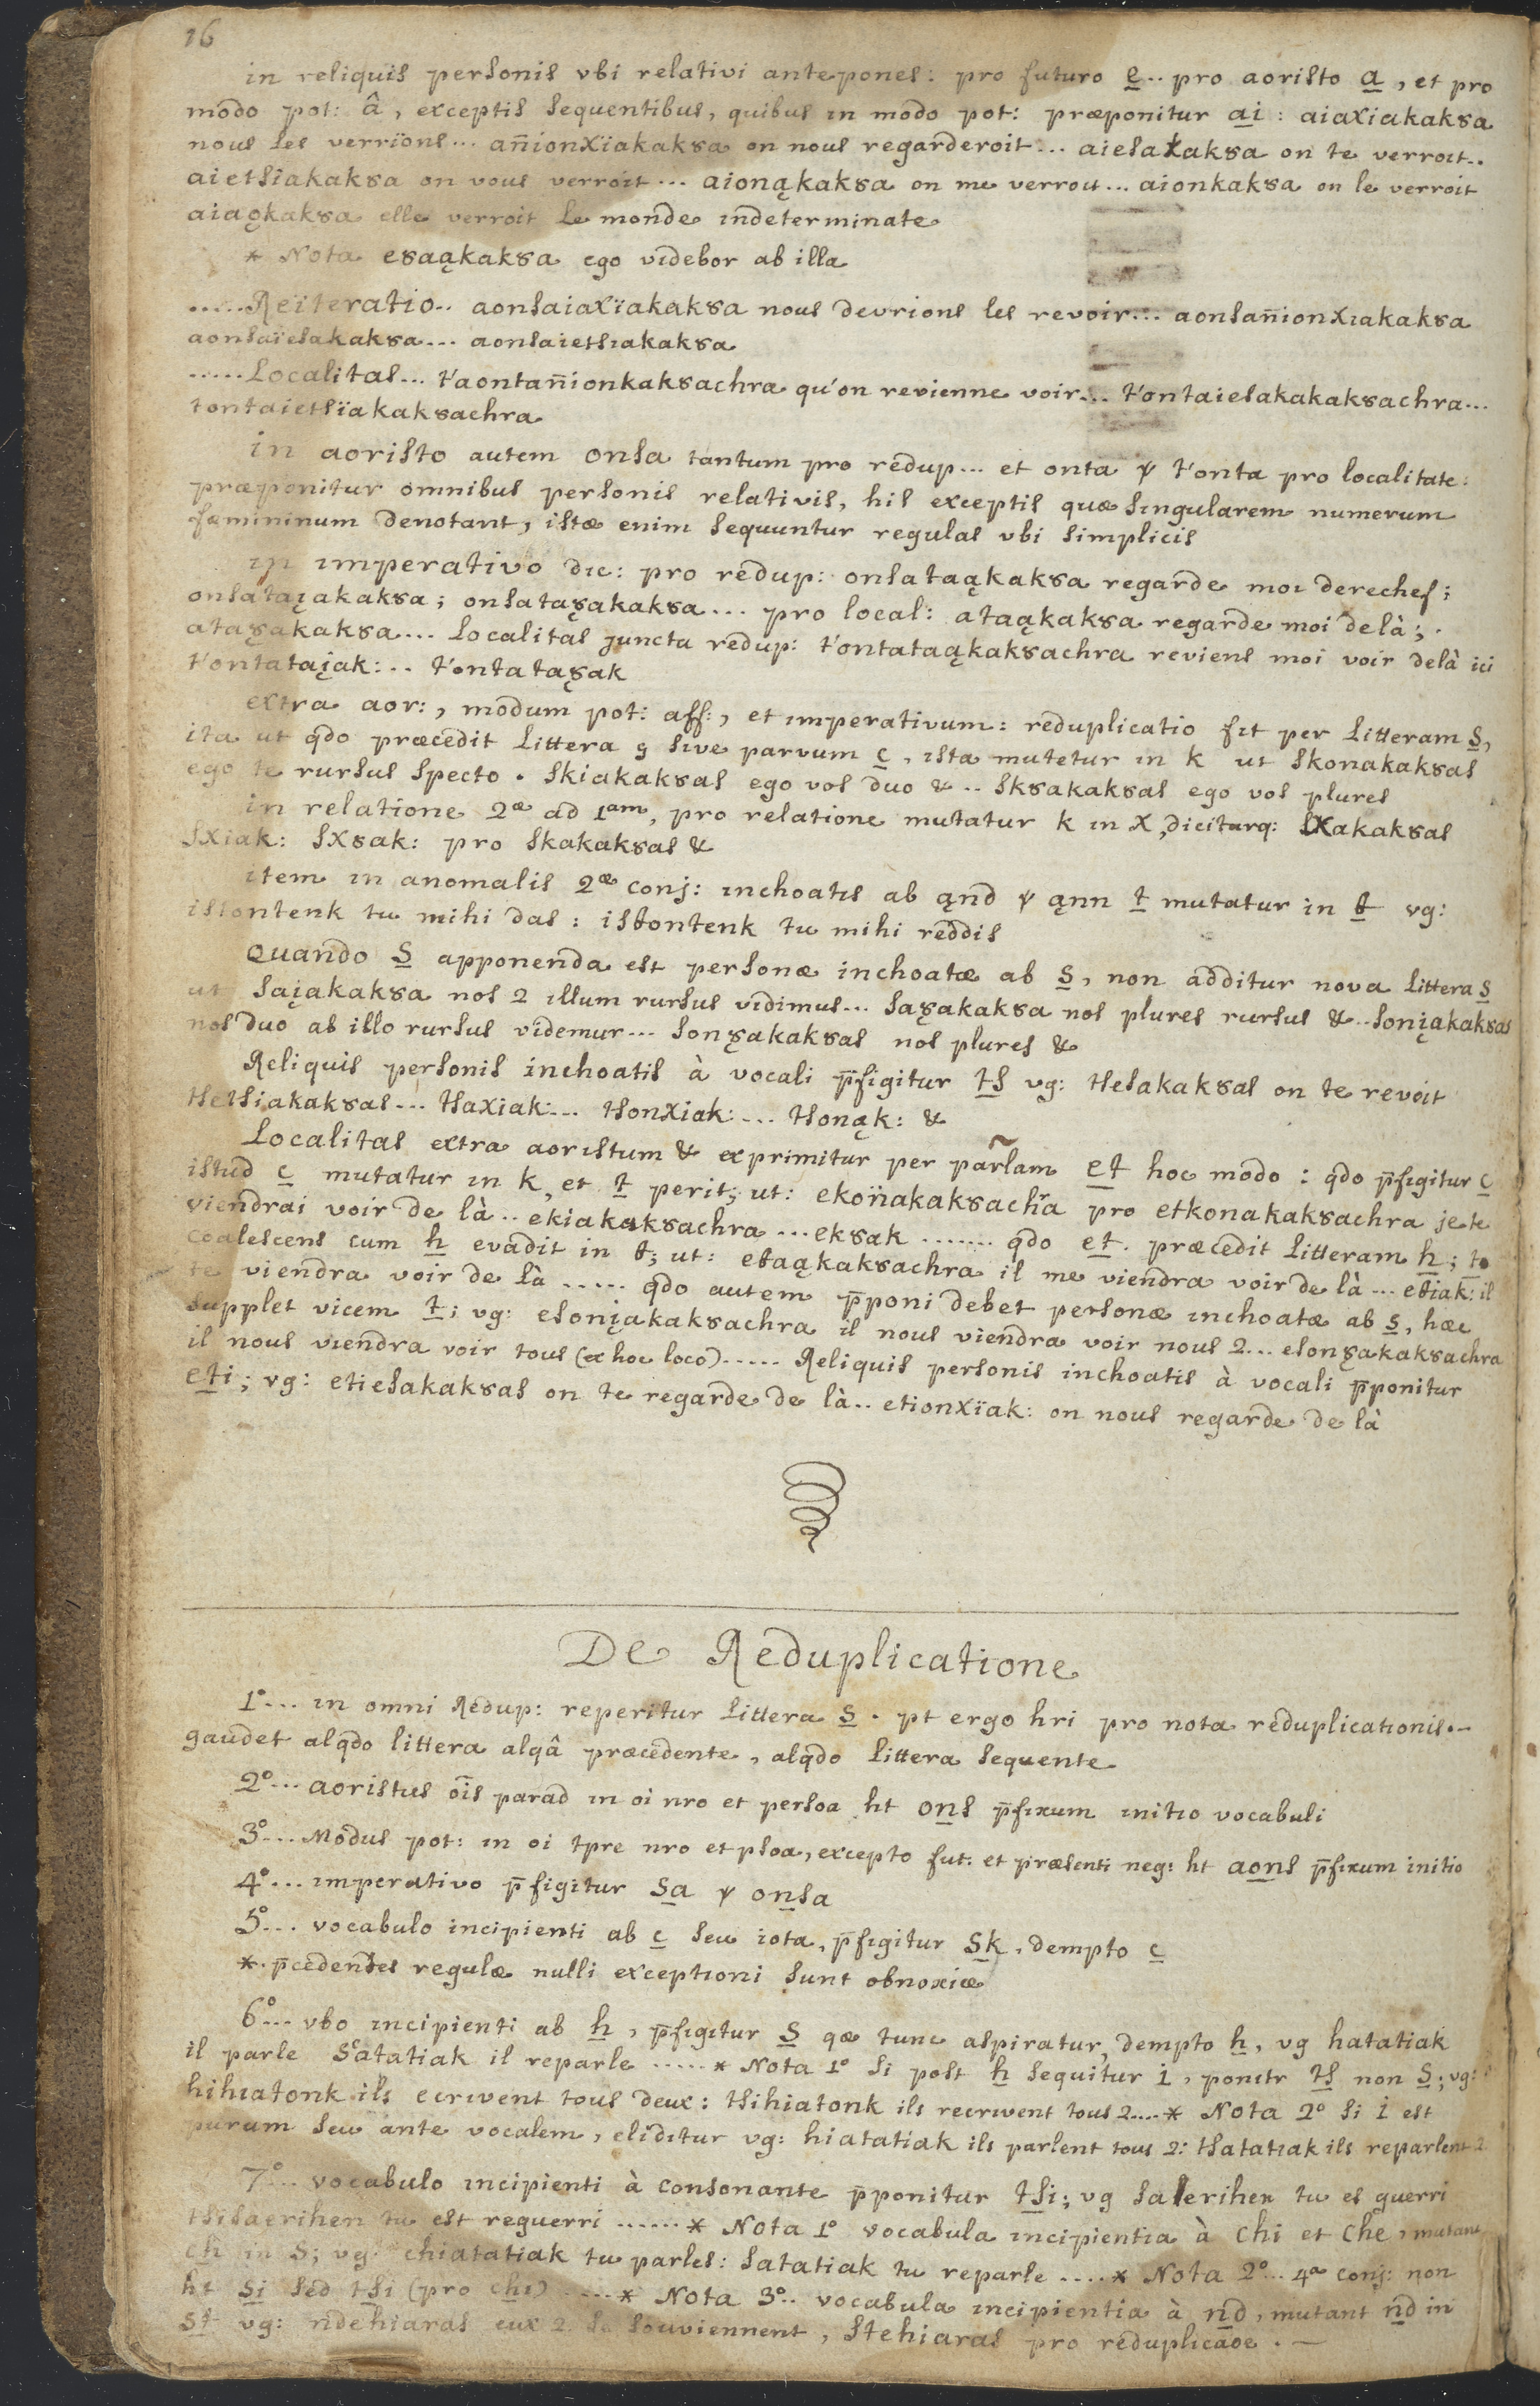 16
in reliquis personis vbi relativi antepones: pro futuro e.. pro aoristo a, et pro
modo pot: â, exceptis sequentibus, quibus in modo pot: præponitur ai: aiaxiakakȣa
nous les verrions... an̈ionxiakakȣa on nous regarderoit... aiesakakȣa on te verroit..
aietsiakakȣa on vous verroit... aionąkakȣa on me verroit... aionkakȣa on le verroit
aiaǫkakȣa elle verroit le monde indeterminate
* Nota eȣaąkakȣa ego videbor ab illa
.....Reïteratio.. aonsaiaxïakakȣa nous devrions les revoir... aonsan̈ionxiakakȣa
aonsaïesakakȣa... aonsaietsiakakȣa
.....Localitas... t'aontan̈ionkakȣachra qu'on revienne voir... t'ontaiesakakakȣachra...
tontaietsïakakȣachra
in aoristo autem onsa tantum pro redup... et onta ꝟ t'onta pro localitate:
præponitur omnibus personis relativis, his exceptis quæ singularem numerum
fæmininum denotant, istæ enim sequuntur regulas vbi simplicis
in imperativo dic: pro redup: onsataąkakȣa regarde moi derechef;
onsataįakakȣa; onsataȣ̨akakȣa... pro local: ataąkakȣa regarde moi delà;.
ataȣ̨akakȣa... Localitas juncta redup: t'ontataąkakȣachra reviens moi voir delà ici
t'ontataįak:.. t'ontataȣ̨ak
extra aor:, modum pot: aff:, et imperativum: reduplicatio fit per litteram s,
ita ut qdo præcedit littera ꞔ sive parvum c, ista mutetur in k ut skonakakȣas
ego te rursus specto. skiakakȣas ego vos duo &.. skȣakakȣas ego vos plures
in relatione 2æ ad 1am, pro relatione mutatur k in x, diciturq: sxakakȣas
sxiak: sxȣak: pro skakakȣas &
item in anomalis 2æ conj: inchoatis ab ąnd ꝟ ąnn t mutatur in ŧ vg:
istontenk tu mihi das: isŧontenk tu mihi reddis
Quando s apponenda est personæ inchoatæ ab s, non additur nova littera s
ut saįakakȣa nos 2 illum rursus vidimus... saȣ̨akakȣa nos plures rursus &.. sonįakakȣas
nos duo ab illo rursus videmur... sonȣ̨akakȣas nos plures &
Reliquis personis inchoatis à vocali p̄figitur ts vg: tsesakakȣas on te revoit
tsetsiakakȣas... tsaxiak:... tsonxiak:... tsonąk: &
Localitas extra aoristum & exprimitur per par̃lam et hoc modo: qdo p̄figitur c
istud c mutatur in k, et t perit; ut: ekon̈akakȣachra pro etkonakakȣachra je te
viendrai voir de là.. ekiakakȣachra... ekȣak....... qdo et. præcedit litteram h; to
coalescens cum h evadit in ŧ; ut: eŧaąkakȣachra il me viendra voir de là... eŧiak: il
te viendra voir de là..... qdo autem p̄poni debet personæ inchoatæ ab s, hæc
supplet vicem t; vg: esonįakakȣachra il nous viendra voir nous 2... esonȣ̨akakȣachra
il nous viendra voir tous (ex hoc loco)..... Reliquis personis inchoatis à vocali p̄ponitur
eti; vg: etiesakakȣas on te regarde de là.. etionxïak: on nous regarde de là
De Reduplicatione
1°... in omni Redup: reperitur littera s. pt ergo hri pro nota reduplicationis.-
gaudet alqdo littera alqâ præcedente, alqdo littera sequente
2°... aoristus ōis parad in oi nro et persoa ht ons p̄fixum initio vocabuli
3°... Modus pot: in oi tpre nro et psoa, excepto fut: et præsenti neg: ht aons p̄fixum initio
4°... imperativo p̄figitur sa ꝟ onsa
5°... vocabulo incipienti ab c seu iota, p̄figitur sk, dempto c
*. p̄cedentes regulæ nulli exceptioni sunt obnoxiæ
6°... vbo incipienti ab h, p̄figitur s qæ tunc aspiratur, dempto h, vg hatatiak
il parle sʿatatiak il reparle.....* Nota 1° si post h sequitur i, ponitr ts non s; vg:
hihiatonk ils ecrivent tous deux: tsihiatonk ils recrivent tous 2....* Nota 2° si i est
purum seu ante vocalem, eliditur vg: hiatatiak ils parlent tous 2: tsatatiak ils reparlent 2
7°... vocabulo incipienti à consonante p̄ponitur tsi; vg saerihen tu es guerri
tsisaerihen tu est reguerri......* Nota 1° vocabula incipientia à chi et che, mutant
ch in s; vg: chiatatiak tu parles: satatiak tu reparle....* Nota 2°... 4æ conj: non
ht si sed tsi (pro chi).....* Nota 3°.. vocabula incipientia à nd, mutant nd in
st vg: ndehiaras eux 2 se souviennent, stehiaras pro reduplicãoe.-